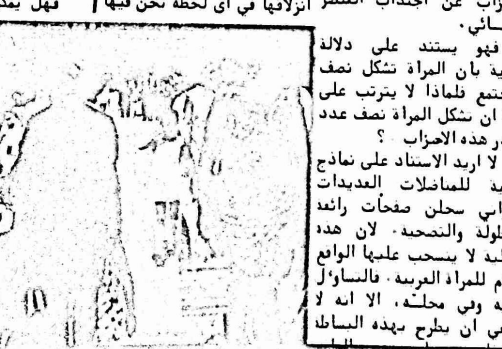 انزلاقها في اى لحظة نحن فيها
فهل يمك
زاب عن اجتذاب العنصر
سائي.
فهو يستند على دلالة
ية بأن المرأة تشكل نصف
جتمع فلماذا لا يترتب على
ان تشكل المرأة نصف عدد
ر هذه الاحزاب ؟
لا اريد الاستناد على نماذج
ية للمناضلات العديدات
اتي سجلن صفحات رائعة
طولة والتضحية. لان هذه
لية لا ينسحب عليها الواقع
م للمرأة العربية. فالتساؤل
ه وفي محله، الا انه لا
ي ان يطرح بهذه البساطة